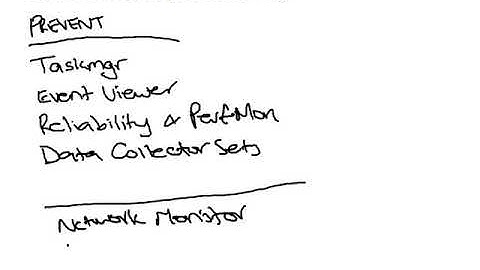 PREVENT
Taskmgr
Event Viewer
Reliability & PerfMon
Data Collector Sets
Network Monitor